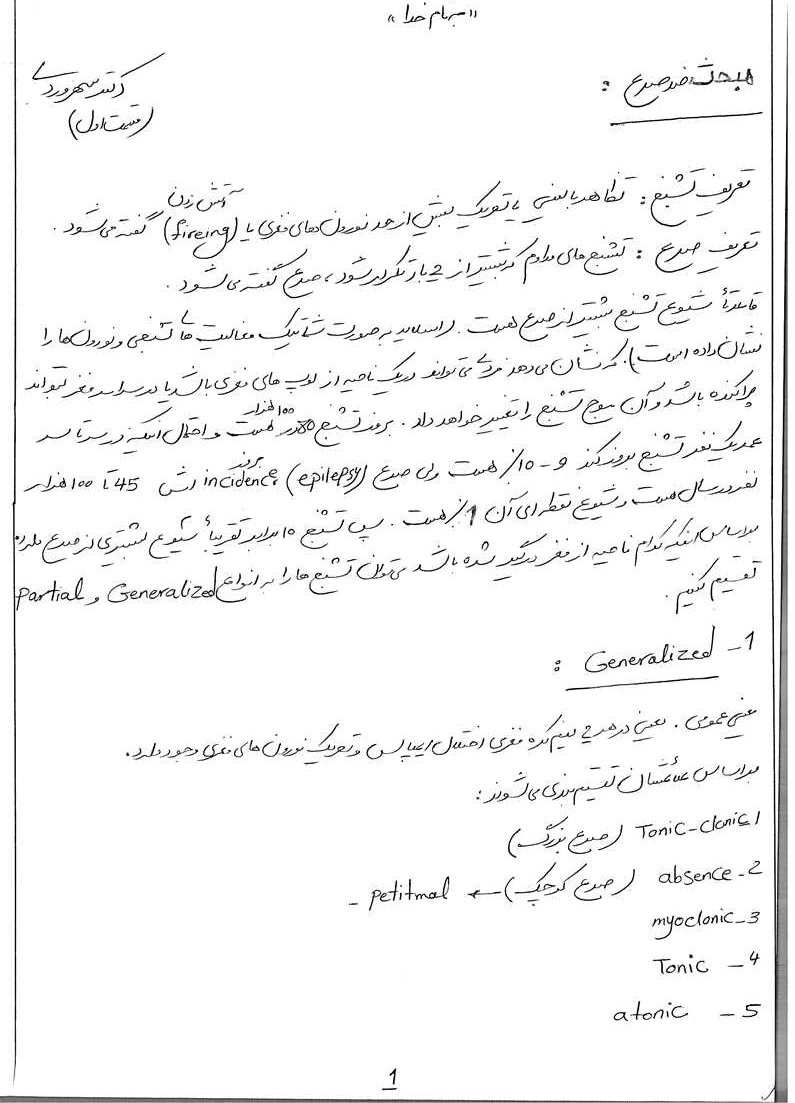 «بنام خدا»
مبحث ضد صرع :
دکتر سهروردی
(قسمت اول)
آتش زدن
تعریف تشنج : تظاهر بالینی یا تحریک بیش از حد نورون های مغزی یا (fireing) گفته می شود .
تعریف صرع : تشنج های مداوم که بیشتر از 2 بار تکرار شود ، صرع گفته می شود .
قاعدتاً شیوع تشنج بیشتر از صرع هست . (اسلاید به صورت شماتیک فعالیت های تشنجی و نورون ها را
نشان داده است) . که نشان می دهد فردی می تواند در یک ناحیه از لوب های مغزی باشد یا در سراسر مغز می تواند
پراکنده باشد و آن موج تشنج را تغییر خواهد داد . بروز تشنج 80 در ۱۰۰ هزار هست و احتمال اینکه در سرتاسر
عمر یک نفر تشنج بروز کند 9-10٪ هست ولی صرع (epilepsy) بروز incidence اش 45 تا ۱۰۰ هزار
نفر در سال هست و شیوع نقطه ای آن 1٪ هست . پس تشنج ۱۰ برابر تقریباً شیوع بیشتری از صرع دارد
براساس اینکه کدام ناحیه از مغز درگیر شده باشد می توان تشنج ها را به انواع Generalized و Partial
تقسیم کنیم .
1- Generalized :
یعنی عمومی . یعنی در هر 2 نیم کره مغزی اختلال ایمپالس و تحریک نورون های مغزی وجود دارد .
براساس علائمشان تقسیم بندی می شوند :
1 Tonic-clonic (صرع بزرگ)
2- absence (صرع کوچک) ← Petitmal -
3- myoclonic
4- Tonic
5- atonic
1